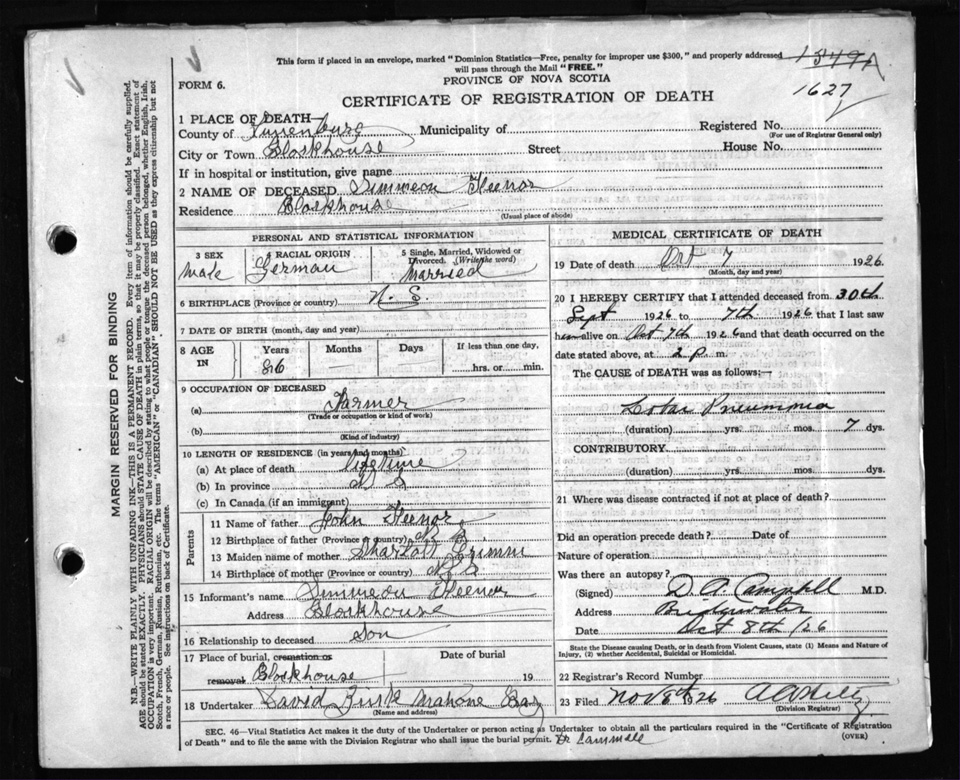 This form if placed in an envelope, marked "Dominion Statistics—Free, penalty for improper use $300," and properly addressed
will pass through the Mail "FREE."
1349A
FORM 6.
PROVINCE OF NOVA SCOTIA
CERTIFICATE OF REGISTRATION OF DEATH
1627
1 PLACE OF DEATH
County of Lunenburg Municipality of Registered No.
(For use of Registrar General only)
City or Town Blockhouse Street House No.
If in hospital or institution, give name
2 NAME OF DECEASED Simmeon Heenor
Residence Blockhouse
(Usual place of abode)
PERSONAL AND STATISTICAL INFORMATION
3 SEX Male
4 RACIAL ORIGIN German
5 Single, Married, Widowed or Divorced. (Write the word) Married
6 BIRTHPLACE (Province or country) N. S.
7 DATE OF BIRTH (month, day and year)
8 AGE IN Years 86 Months Days If less than one day, hrs. or min.
9 OCCUPATION OF DECEASED
(a) Farmer
(Trade or occupation or kind of work)
(b)
(Kind of industry)
10 LENGTH OF RESIDENCE (in years and months)
(a) At place of death lifetime
(b) In province N S
(c) In Canada (if an immigrant)
Parents
11 Name of father John Heenor
12 Birthplace of father (Province or country) N S.
13 Maiden name of mother Sharlott Grimm
14 Birthplace of mother (Province or country) N S
15 Informant's name Simmeon Heenor
Address Blockhouse
16 Relationship to deceased Son
17 Place of burial, cremation or removal Blockhouse Date of burial 19
18 Undertaker David Zink Mahone Bay
(Name and address)
MEDICAL CERTIFICATE OF DEATH
19 Date of death Oct 7 1926
(Month, day and year)
20 I HEREBY CERTIFY that I attended deceased from 30th
Sept 1926 to 7th 1926 that I last saw
him alive on Oct 7th 1926 and that death occurred on the
date stated above, at 2 p. m.
The CAUSE of DEATH was as follows:—
Lobar Pneumonia
(duration) yrs. mos. 7 dys.
CONTRIBUTORY
(duration) yrs. mos. dys.
21 Where was disease contracted if not at place of death?
Did an operation precede death? Date of
Nature of operation
Was there an autopsy?
(Signed) D. A. Campbell M.D.
Address Bridgewater
Date Oct 8th /26
State the Disease causing Death, or in death from Violent Causes, state (1) Means and Nature of
Injury, (2) whether Accidental, Suicidal or Homicidal.
22 Registrar's Record Number
23 Filed Nov 8th 1926
(Division Registrar)
SEC. 46—Vital Statistics Act makes it duty of the Undertaker or person acting as Undertaker to obtain all the particulars required in the "Certificate of Registration
of Death" and to file the same with the Division Registrar who shall issue the burial permit.
(OVER)
MARGIN RESERVED FOR BINDING
N.B.—WRITE PLAINLY WITH UNFADING INK—THIS IS A PERMANENT RECORD. Every item of information should be carefully supplied.
AGE should be stated EXACTLY. PHYSICIANS should STATE CAUSE OF DEATH in plain terms, so that it may be properly classified. Exact statement of
OCCUPATION is very important. RACIAL ORIGIN will be described by stating to what people or tongue the deceased person belonged, whether English, Irish,
Scotch, French, German, Russian, Ruthenian, etc. The terms "AMERICAN" or "CANADIAN" SHOULD NOT BE USED as they express citizenship but not
a race or people. See instructions on back of Certificate.